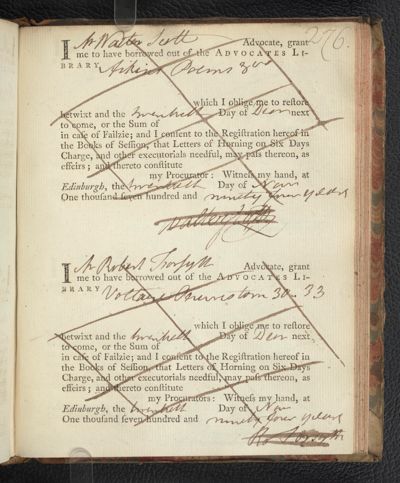 276.
I Mr Walter Scott Advocate, grant
me to have borrowed out of the ADVOCATES LI-
BRARY Poems 8vo
which I oblige me to reſtore
betwixt and the twentieth Day of Decr next
to come, or the Sum of
in caſe of Failzie; and I conſent to the Regiſtration hereof in
the Books of Seſſion, that Letters of Horning on Six Days
Charge, and other executorials needful, may paſs thereon, as
effeirs; and thereto conſtitute
my Procurator: Witneſs my hand, at
Edinburgh, the twentieth Day of Novr
One thouſand ſeven hundred and ninety four years
Walter Scott
I Mr Robert Forsyth Advocate, grant
me to have borrowed out of the ADVOCATES LI-
BRARY Voltaire 30. 33
which I oblige me to reſtore
betwixt and the twentieth Day of Decr next
to come, or the Sum of
in caſe of Failzie; and I conſent to the Regiſtration hereof in
the Books of Seſſion, that Letters of Horning on Six Days
Charge, and other executorials needful, may paſs thereon, as
effeirs; and thereto conſtitute
my Procurators: Witneſs my hand, at
Edinburgh, the twentieth Day of Novr
One thouſand ſeven hundred and ninety four years
Ro Forsyth